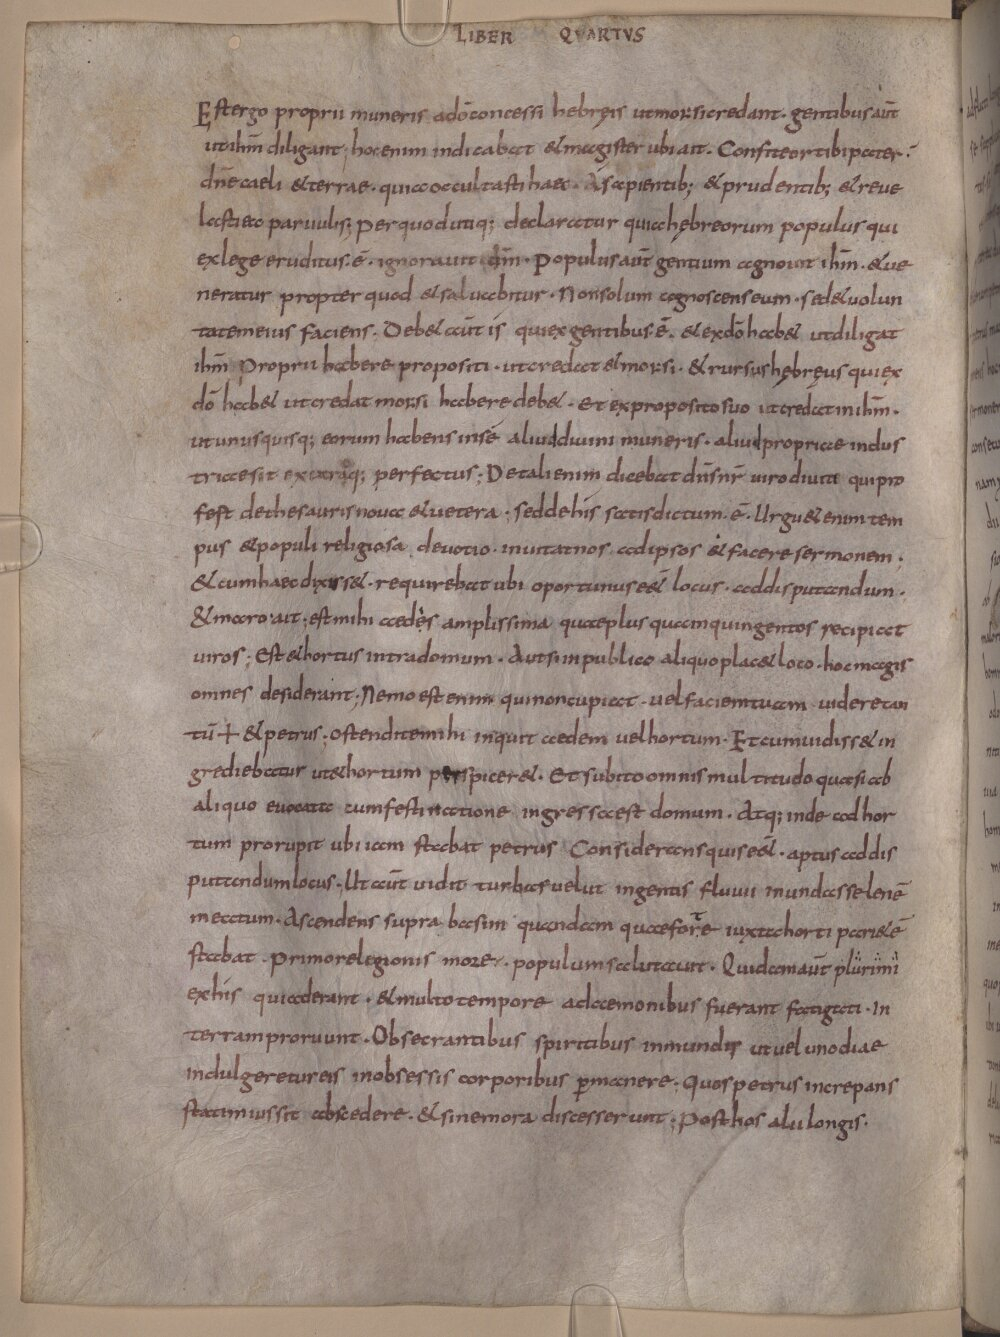 LIBER QVARTVS
Est ergo proprii muneris a dō concessi hebręis ut morsi credant · gentibus aūt
ut ihm̄ diligant ; hoc enim indicabat & magister ubi ait · Confiteor tibi pater ·
dnē caeli & terrae · quia occultasti haec · A sapientib; & prudentib; & reue
lasti ea paruulis ; Per quod utiq; declaratur quia hębreorum populus qui
ex lege eruditus · ē · ignorauit ihm̄ · Populus aūt gentium agnouit ihm̄ · & ue
neratur propter quod & saluabitur · Non solum agnoscens eum · sed & uolun
tatem eius faciens · Deb& aūt is qui ex gentibus ē · & ex dō hab& ut diligat
ihm̄ Proprii habere propositi · ut credat & morsi · & rursus hębręus qui ex
dō hab& ut credat morsi habere deb& · Et ex proposito suo ut credat in ihm̄ ·
ut unusquisq; eorum habens in sē aliud diuini muneris · aliud propriae indus
triae sit ex utroq; perfectus ; De tali enim dicebat dn̄s nr̄ uiro diuiti qui pro
fest de thesauris noua & uetera · sed de his satis dictum · ē · Urgu& enim tem
pus & populi religiosa deuotio · inuitat nos ad ipsos & facere sermonem ·
& cum haec dixiss& · requirebat ubi oportunus e& locus · ad disputandum ·
& maro ait ; est mihi aedes amplissima quae plus quam quingentos recipiat
uiros ; Est & hortus intra domum · Aut si in publico aliquo plac& loco · hoc magis
omnes desiderant ; Nemo est enim qui non cupiat · uel faciem tuam uidere tan
tū + & petrus ; ostendite mihi inquit aedem uel hortum · Et cum uidiss& in
grediebatur ut & hortum perspicer& · Et subito omnis multitudo quasi ab
aliquo euocata cum festinatione ingressa est domum · Atq; inde ad hor
tum prorupit ubi iam stabat petrus Considerans quis e& · aptus ad dis
putandum locus · Ut aūt uidit turbas uelut ingentis fluuii inundasse lenē
meatum · Ascendens supra basim quandam quae forte iuxta horti pari&ē
stabat · Primo relegionis more · populum salutauit · Quidam aūt plurimi
ex his qui aderant · & multo tempore a daemonibus fuerant fatigati · In
terram proruunt · Obsecrantibus spiritibus inmundis ut uel uno diae
indulgeretur eis in obsessis corporibus ꝑmanere · Quos petrus increpans
statim iussit abscedere · & sine mora discesserunt ; Post hos alii longis ·